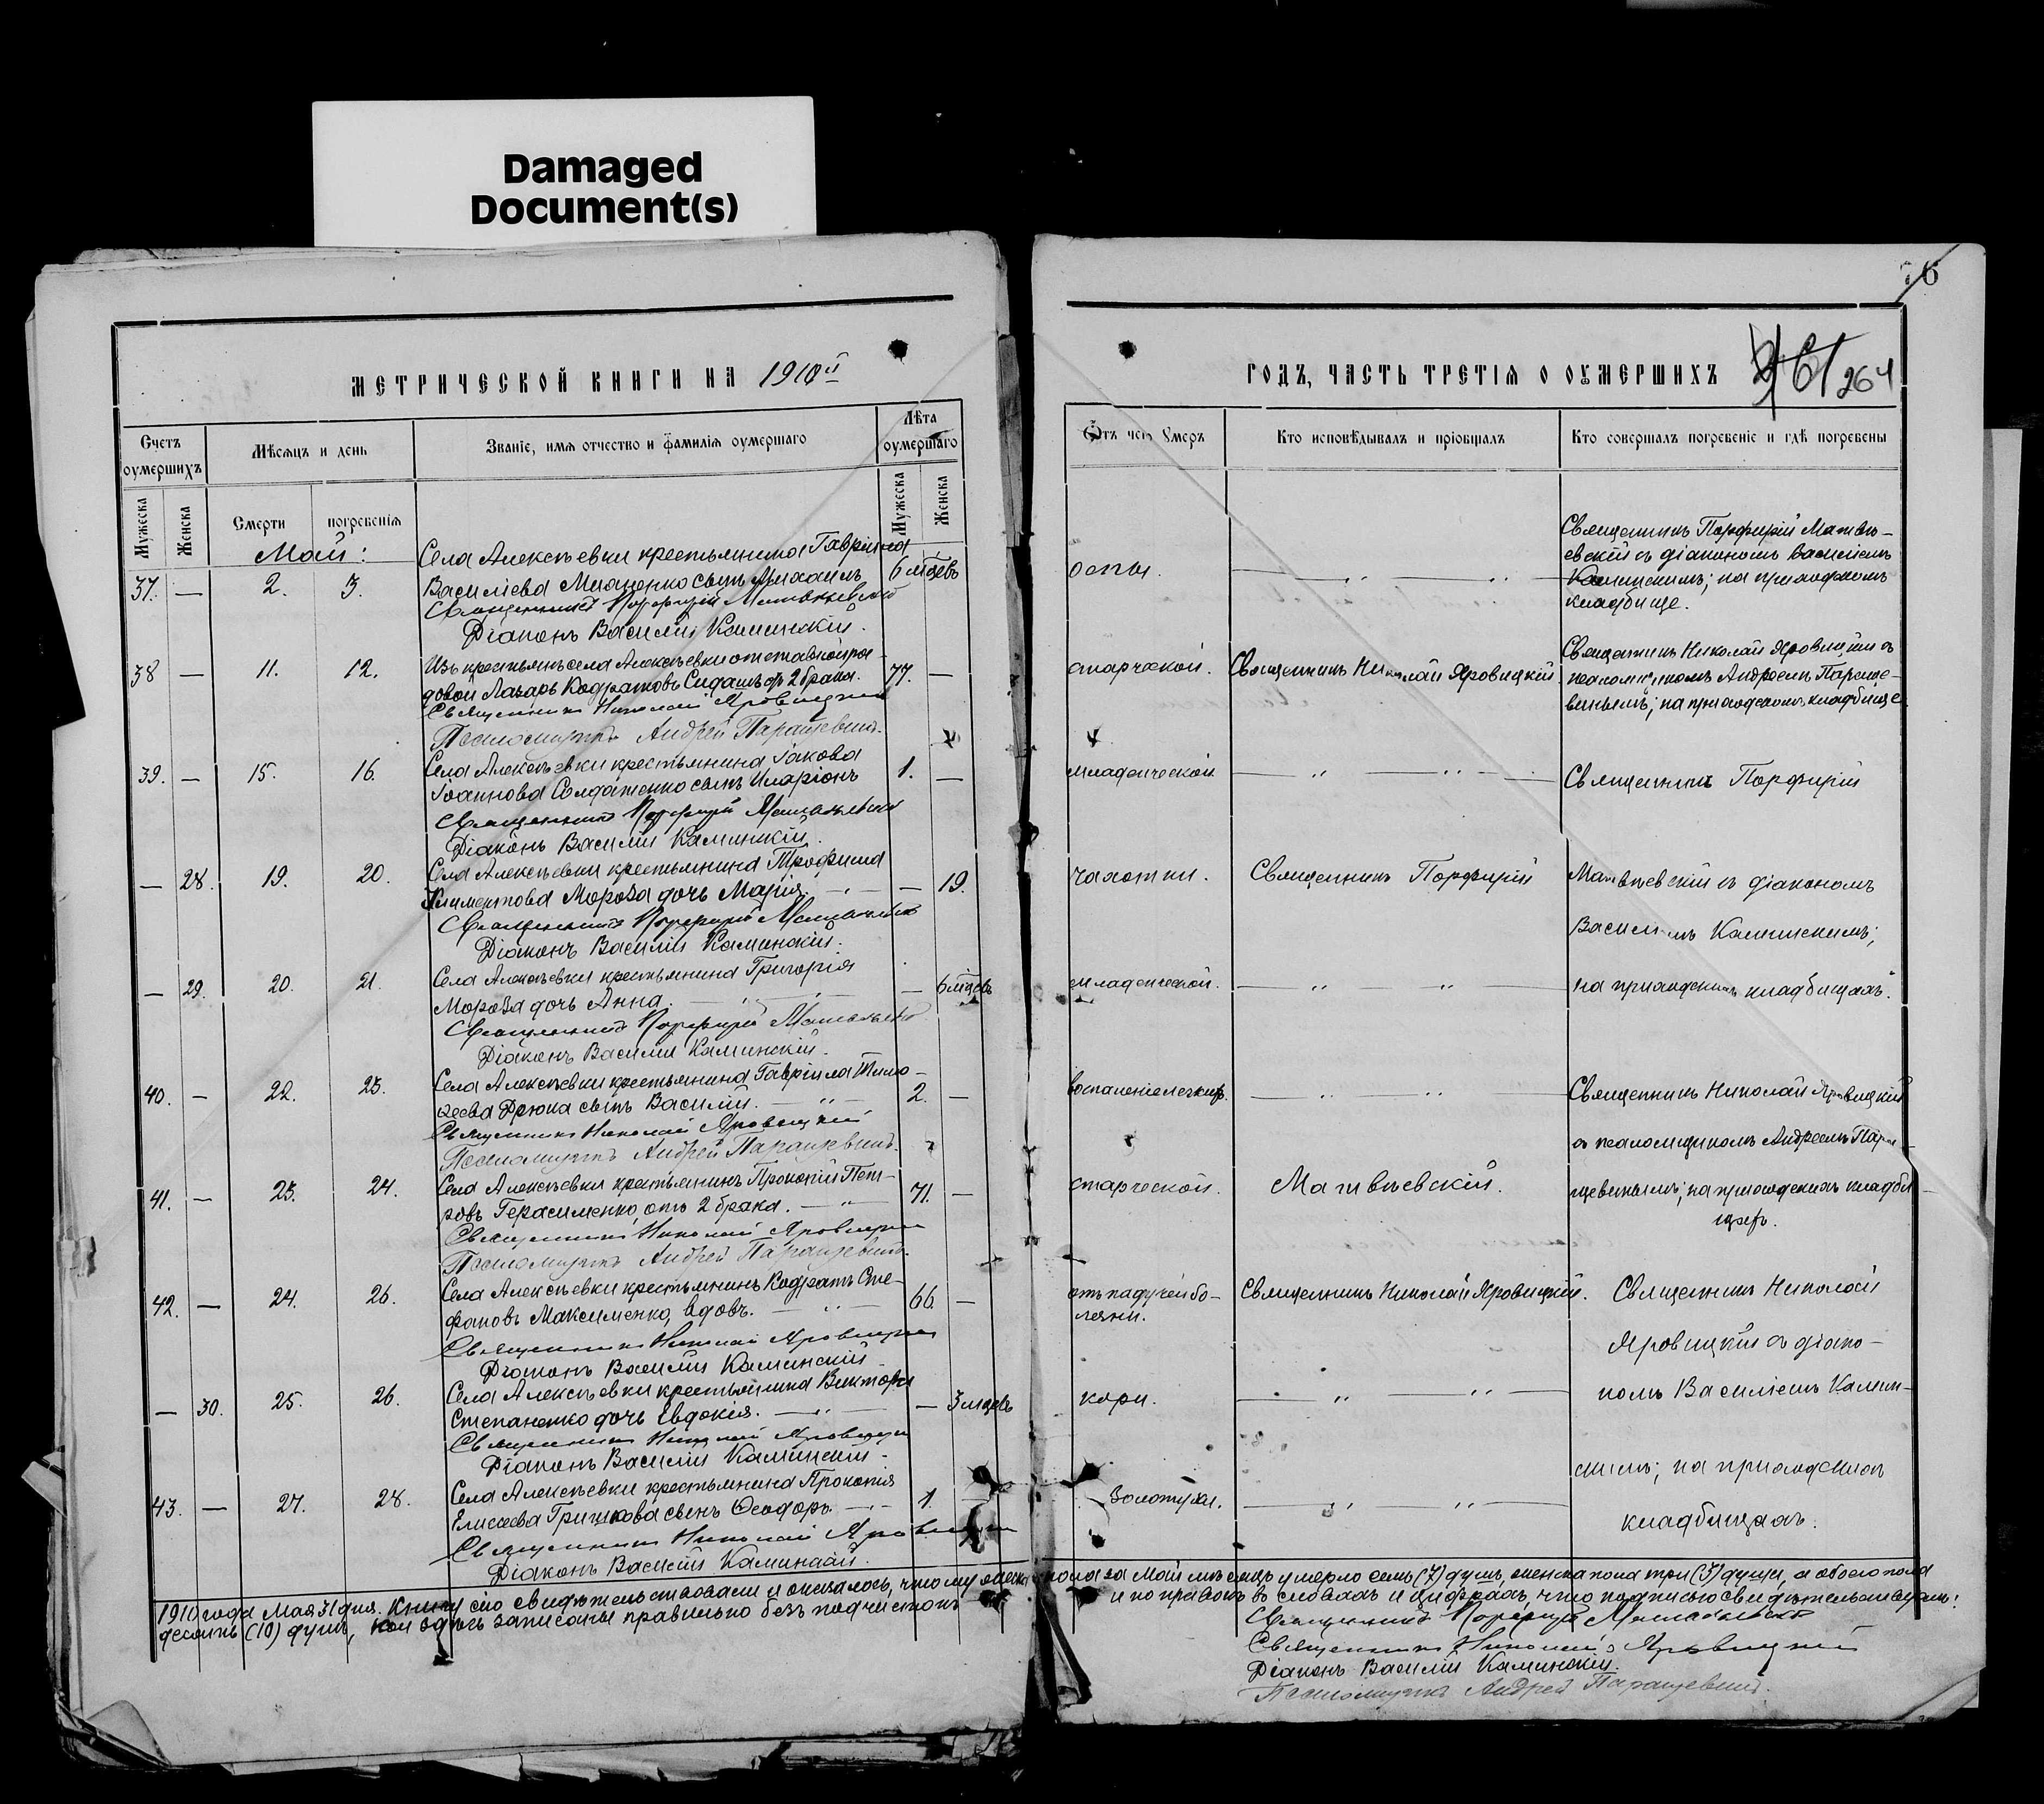 Damaged
Document(s)
МЕТРИЧЕСКОЙ КНИГИ НА 1910й
Счетъ оумершихъ
Мѣсяцъ и день
Званіе, имя отчество и фамилія оумершаго
Лѣта оумершаго
Мужеска
Женска
Смерти
погребенія
Мужеска
Женска
Май:
37. — 2. 3.
Села Алексѣевки крестьянина Гавріила
Василіева Мищенко сынъ Михаилъ
6 мцевъ
Священникъ Порфирій Матвѣевскій
Діаконъ Василій Каминскій.
38 — 11. 12.
Изъ крестьянъ села Алексѣевки отставной ря-
довой Лазарь Кодратовъ Сидашъ отъ 2 брака.
77. —
Священникъ Николай Яровицкій
Псаломщикъ Андрей Паращевинъ.
39. — 15. 16.
Села Алексѣевки крестьянина Іакова
Іоаннова Солдатенко сынъ Иларіонъ
1. —
Священникъ Порфирій Матвѣевскій
Діаконъ Василій Каминскій.
— 28. 19. 20.
Села Алексѣевки крестьянина Трофима
Климентова Мороза дочь Марія. — „ —
— 19.
Священникъ Порфирій Матвѣевскій
Діаконъ Василій Каминскій.
— 29. 20. 21.
Села Алексѣевки крестьянина Григорія
Мороза дочь Анна. — „ — „ —
— 6 мцевъ
Священникъ Порфирій Матвѣевскій
Діаконъ Василій Каминскій.
40. — 22. 23.
Села Алексѣевки крестьянина Гавріила Тимо-
ѳеева Дрюка сынъ Василій. — „ —
2. —
Священникъ Николай Яровицкій
Псаломщикъ Андрей Паращевинъ.
41. — 23. 24.
Села Алексѣевки крестьянинъ Прокопій Пет-
ровъ Герасименко, отъ 2 брака. — „
71. —
Священникъ Николай Яровицкій
Псаломщикъ Андрей Паращевинъ.
42. — 24. 26.
Села Алексѣевки крестьянинъ Кодратъ Сте-
фановъ Максименко, вдовъ. — „ —
66. —
Священникъ Николай Яровицкій
Діаконъ Василій Каминскій
— 30. 25. 26.
Села Алексѣевки крестьянина Виктора
Степаненко дочь Евдокія. — „ —
— 3 мцевъ
Священникъ Николай Яровицкій
Діаконъ Василій Каминскій.
43. — 27. 28.
Села Алексѣевки крестьянина Прокопія
Елисеева Гришкова сынъ Ѳеодоръ. — „ —
1. —
Священникъ Николай Яровицкій
Діаконъ Василій Каминскій.
1910 года Мая 31 дня. Книгу сію свидѣтельствовали и оказалось, что мужеска
десять (10) душъ, кои здѣсь записаны правильно безъ подчистокъ
264
ГОДЪ, ЧАСТЬ ТРЕТІЯ О ОУМЕРШИХЪ
Отъ чего Умеръ
Кто исповѣдывалъ и пріобщалъ
Кто совершалъ погребеніе и гдѣ погребены
оспы. — „ — „ —
Священникъ Порфирій Матвѣ-
евскій съ діакономъ Василіемъ
Каминскимъ; на приходскомъ
кладбище.
старческой.
Священникъ Николай Яровицкій
Священникъ Николай Яровицкій съ
псаломщикомъ Андреемъ Параще-
винымъ; на приходскомъ кладбище
младенческой — „ — „ —
Священникъ Порфирій
чахотки.
Священникъ Порфирій
Матвѣевскій съ діакономъ
Василіемъ Каминскимъ;
младенческой. — „ „ —
на приходскихъ кладбищахъ.
воспаленіе легкихъ. — „ „ —
Священникъ Николай Яровицкій
съ псаломщикомъ Андреемъ Пара-
старческой.
Матвѣевскій.
щевинымъ; на приходскихъ кладби-
щахъ.
отъ падучей бо-
лезни.
Священникъ Николай Яровицкій.
Священникъ Николай
Яровицкій съ діако-
кори. — „ — „ —
номъ Василіемъ Камин-
скимъ; на приходскихъ
Золотухи. — „ „ —
кладбищахъ.
пола за Май мѣсяцъ умерло семь (7) душъ, женска пола три (3) души, а обоего пола
и поправокъ въ словахъ и цифрахъ, что подписью свидѣтельствуемъ:
Священникъ Порфирій Матвѣевскій
Священникъ Николай Яровицкій
Діаконъ Василій Каминскій.
Псаломщикъ Андрей Паращевинъ.